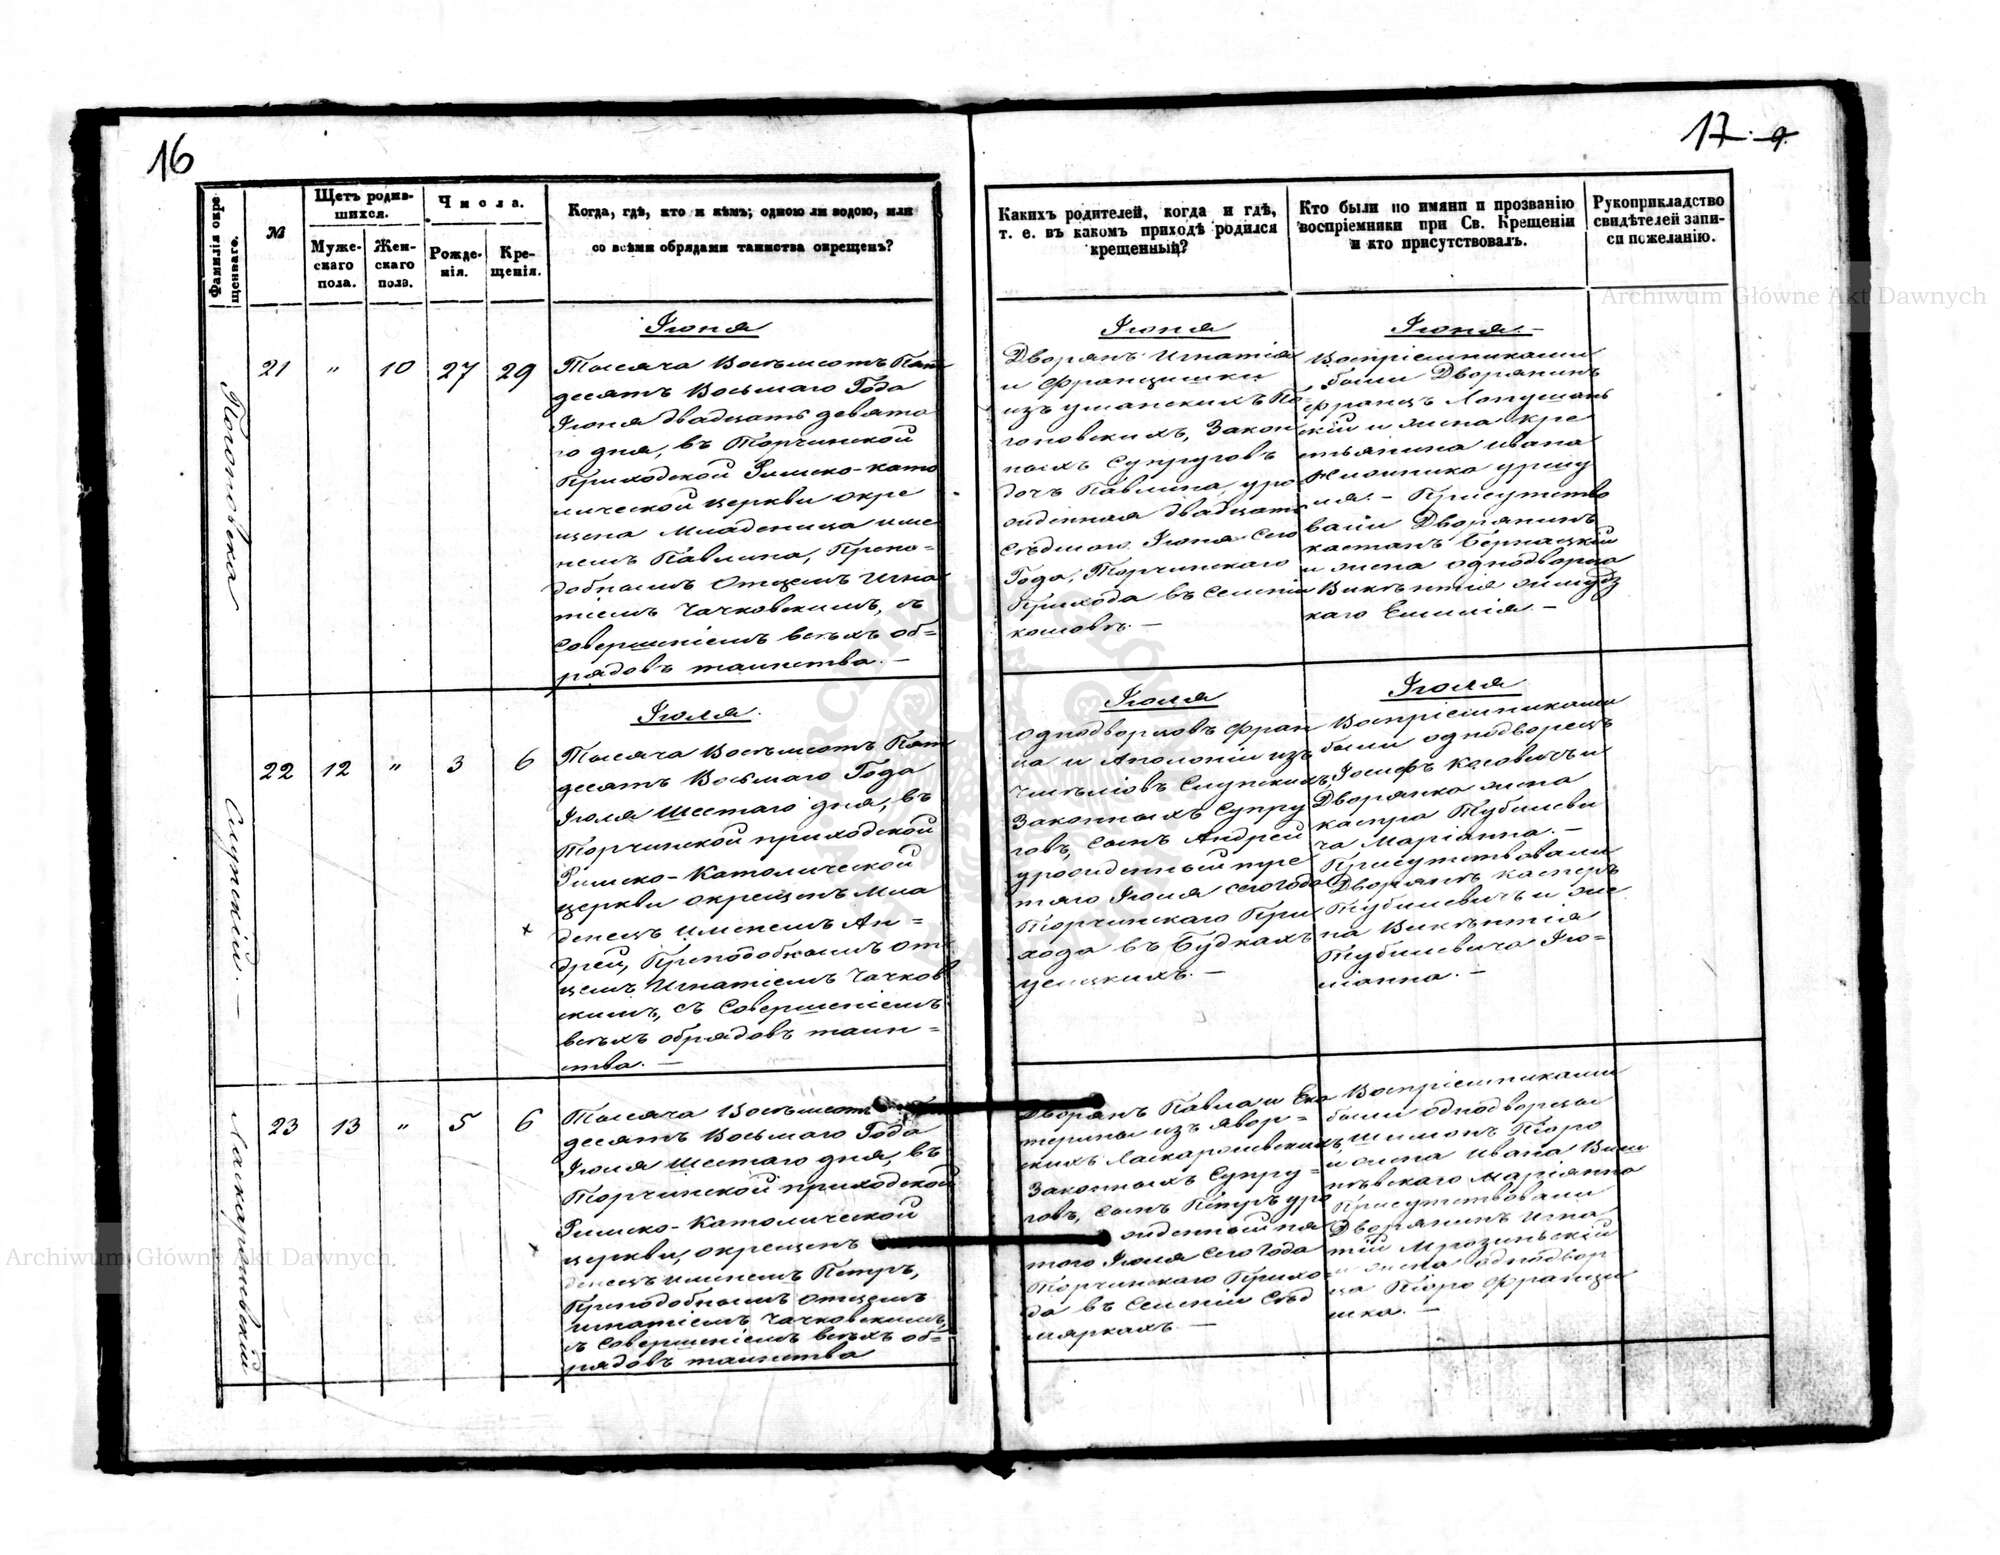 16
17. 9.
Фамилія окре
щеннаго.
№
Щетъ родив-
шихся.
Муже-
скаго
пола.
Жен-
скаго
пола.
Числа.
Рожде-
нія.
Кре-
щенія.
Когда, гдѣ, кто и кѣмъ; одною ли водою, или
со всѣми обрядами таинства окрещенъ?
Каких родителей, когда и гдѣ,
т. е. въ какомъ приходѣ родился
крещенный?
Кто были по имяни и прозванію
воспріемники при Св. Крещеніи
и кто присутствовалъ.
Рукоприкладство
свидѣтелей запи-
си пожеланію.
Archiwum Główne Akt Dawnych
Погоновска
21 " 10 27 29
Іюня
Тысяча Восѣмсотъ Пят
десятъ Восьмаго Года
Іюня двадцать девято
го дня, въ Торчинской
Приходской Римско-като
лической церкви окре
щена Младеница име
немъ Павлина, Препо-
добнымъ Отцемъ Игна
тіемъ Чачковскимъ, съ
Совершеніемъ всѣхъ об-
рядовъ таинства. —
Іюня
Дворянъ Игнатія
и Францишки
изъ Уманскихъ По-
гоновскихъ, Закон
ныхъ Супруговъ
дочь Павлина, уро
жденная двадцать
Седьмого Іюня Сего
Года, Торчинскаго
Прихода въ Селеніи
—
Іюня. —
Воспріемниками
были Дворянинъ
Францъ Лопушан
скій и жена кре
стьянина Ивана
Уршу
ля. — Присутство
вали Дворянинъ
Каетанъ Бернацкій
и жена однодворца
Викентія
каго Емилія. —
Слупскій. —
22 12 " 3 6
Іюля.
Тысяча Восѣмсотъ Пят
десятъ Восьмаго Года
Іюля Шестаго дня, въ
Торчинской приходской
Римско-Католической
церкви окрещенъ Мла
денецъ именемъ Ан-
дрей, Преподобнымъ От
цемъ Игнатіемъ Чачков
скимъ, съ Совершеніемъ
всѣхъ обрядовъ таин-
ства. —
Іюля
Однодворцовъ Фран
ца и Аполоніи изъ
Слупскихъ,
Законныхъ Супру
говъ, сынъ Андрей
урожденный тре
тяго Іюля сего года
Торчинскаго При
хода въ Будкахъ
—
Іюля
Воспріемниками
были однодворецъ
Іосифъ Косовичъ и
Дворянка жена
Каспра Тубилеви
ча Маріанна. —
Присутствовали
Дворянъ Касперъ
Тубилевичъ и же
на Викентія
Тубилевича Юо-
ліанна. —
Ласкаржевскій
23 13 " 5 6
Тысяча Восѣмсотъ
десятъ Восьмаго Года
Іюля Шестаго дня, въ
Торчинской приходской
Римско-Католической
церкви, окрещенъ
денецъ именемъ Петръ,
Преподобнымъ Отцемъ
Игнатіемъ Чачковскимъ,
съ Совершеніемъ всѣхъ об-
рядовъ таинства
Дворянъ Павла и Ека
терины изъ Явор-
скихъ Ласкаржевскихъ,
Законныхъ Супру-
говъ, сынъ Петръ уро
жденный пя
того Іюля Сего Года
Торчинскаго Прихо-
да въ Селеніи Сѣд
мяркахъ —
Воспріемниками
были однодворцы
Шимонъ Пюро
и жена Ивана Виш
нѣвскаго Маріанна
Присутствовали
Дворянинъ Игна
тій Мрозинскій
и жена однодвор
ца Пюро Францы
шка. —
Archiwum Główne Akt Dawnych